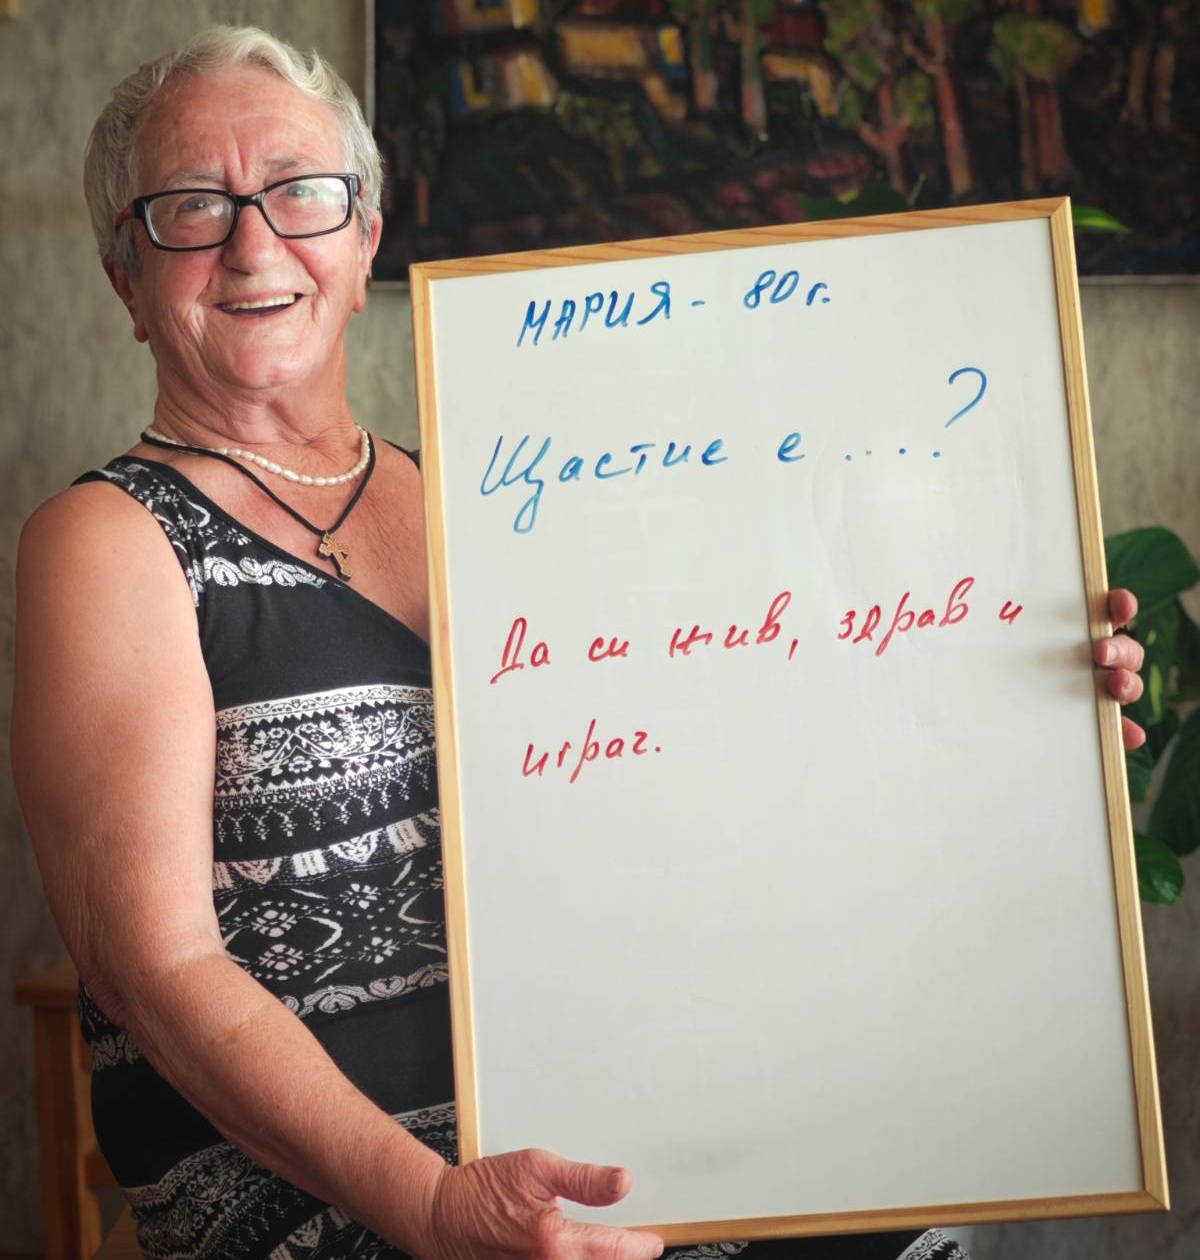 МАРИЯ - 80 г.
Щастие е ....?
Да си жив, здрав и
играч.